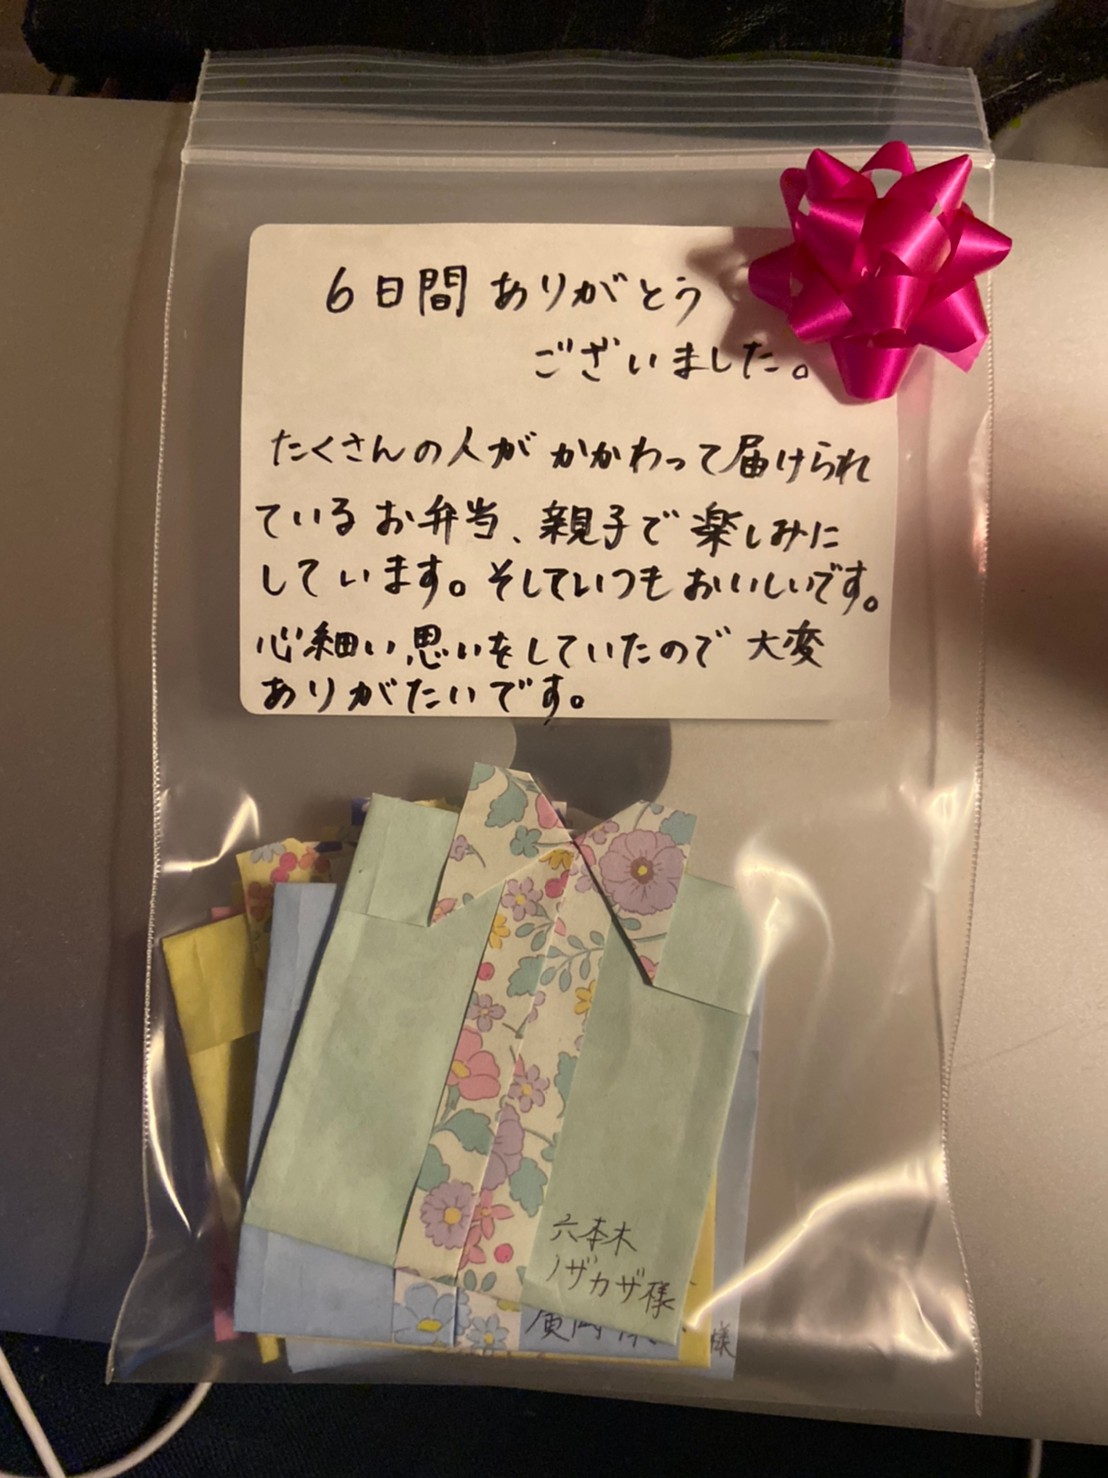 6日間ありがとう
ございました。
たくさんの人がかかわって届けられ
ているお弁当、親子で楽しみに
しています。そしていつもおいしいです。
心細い思いをしていたので大変
ありがたいです。
六本木
ノザカザ様
様